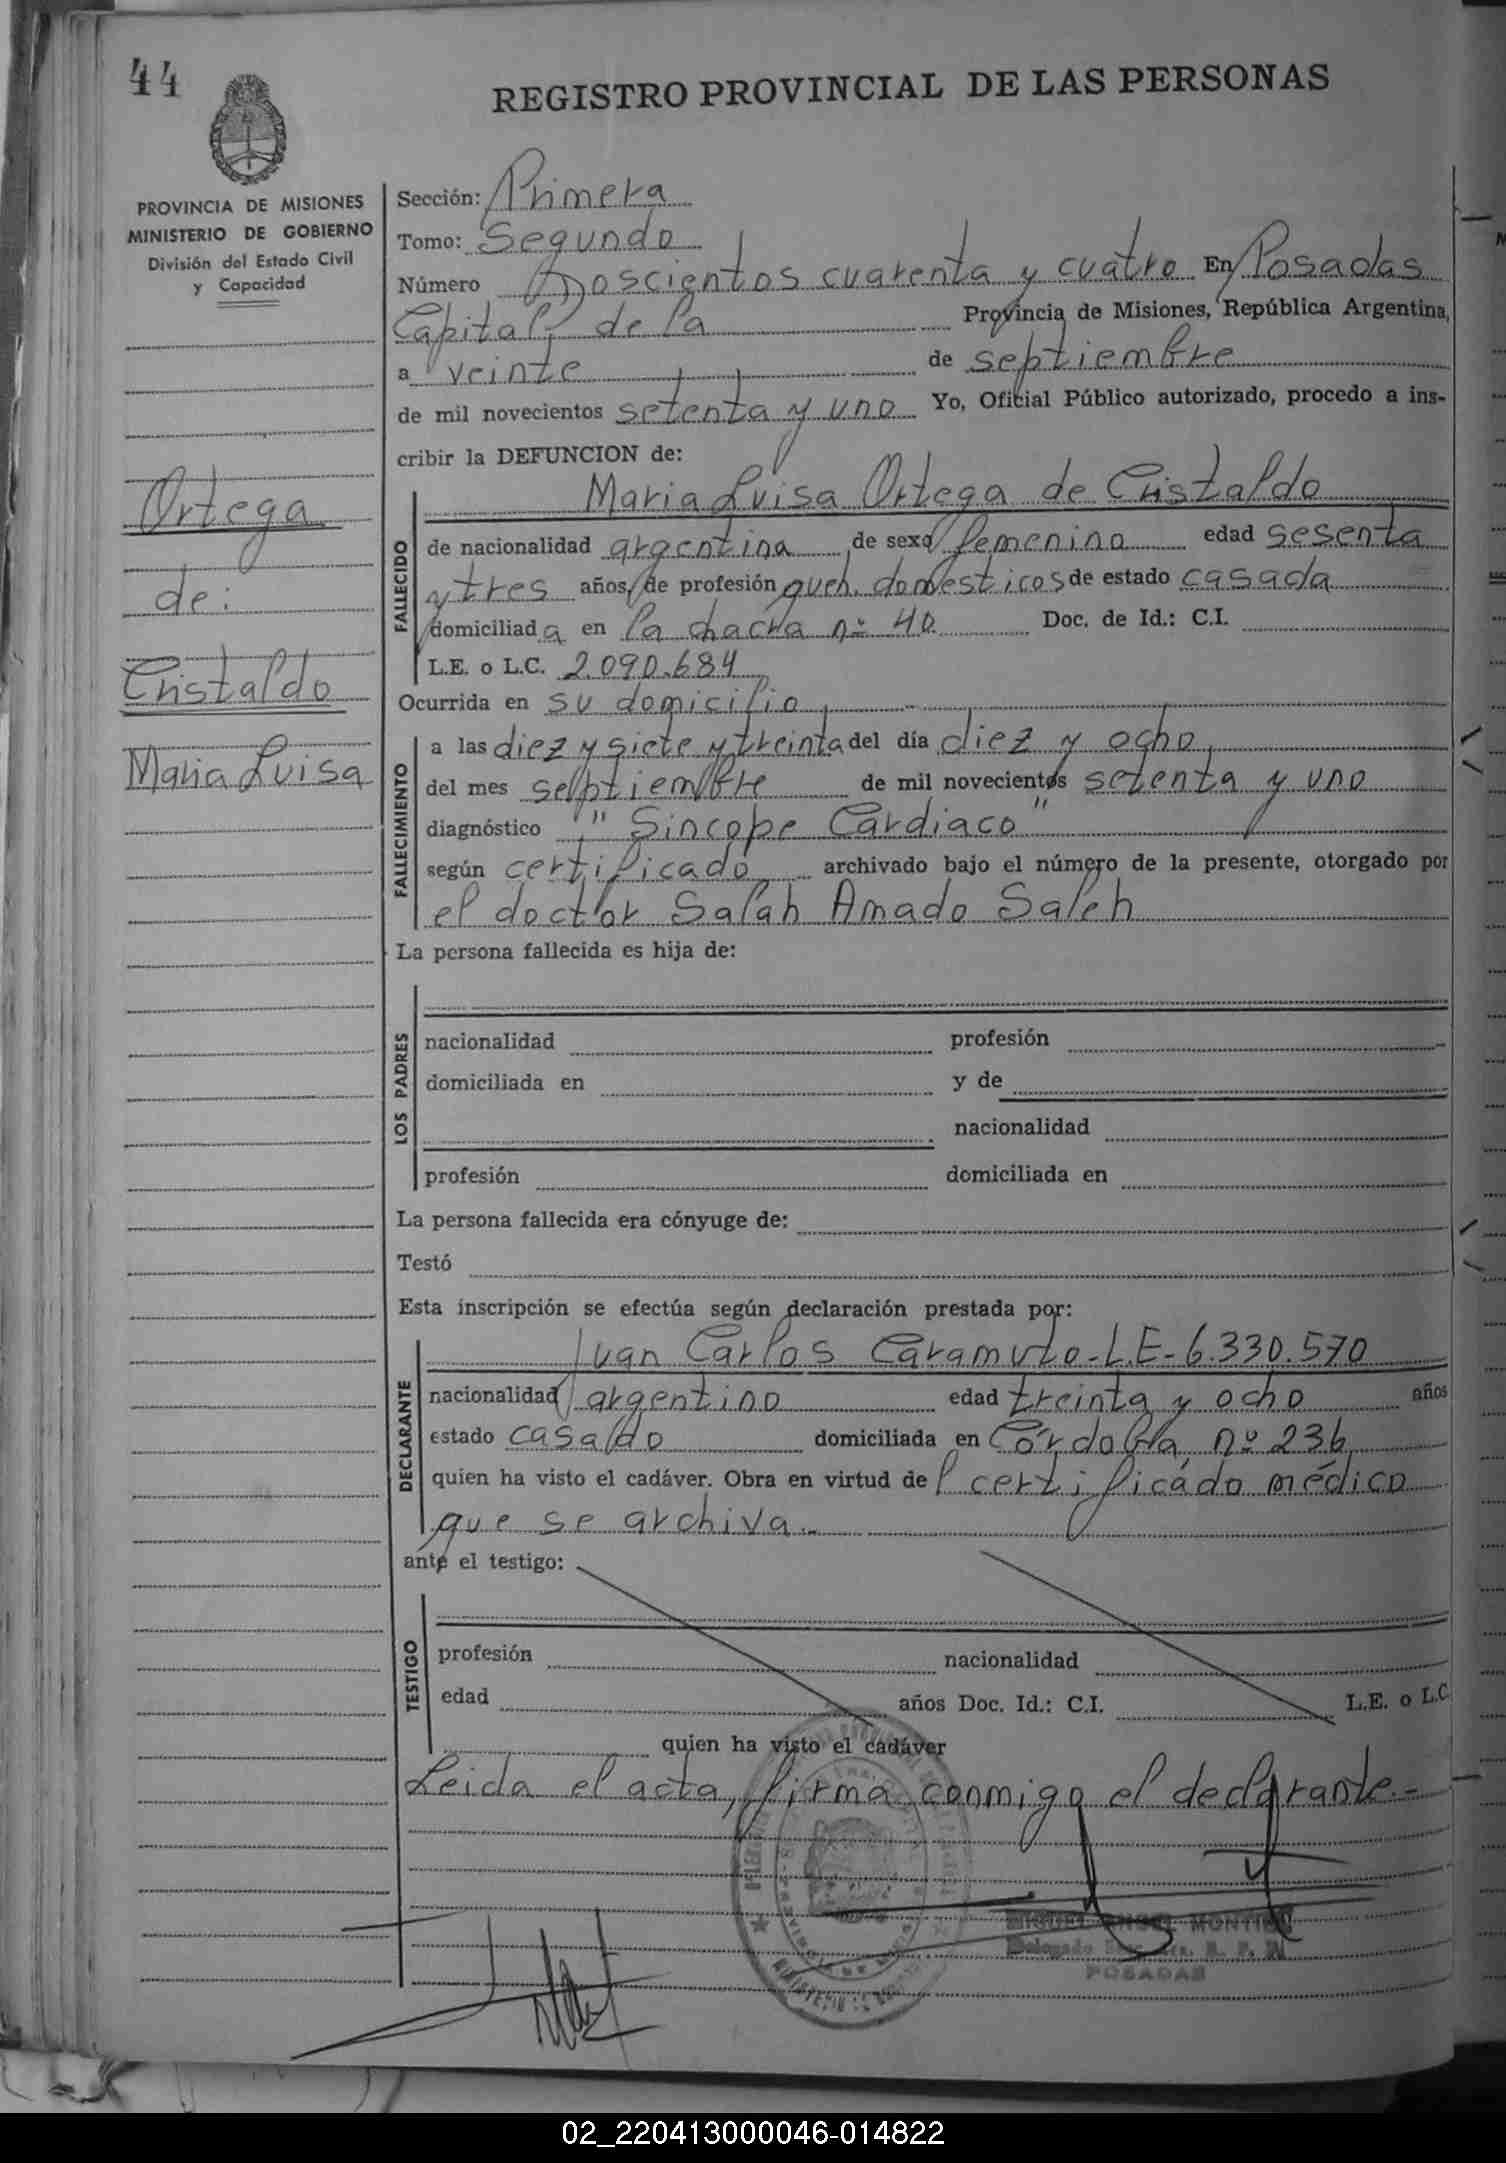 44
REGISTRO PROVINCIAL DE LAS PERSONAS
PROVINCIA DE MISIONES
MINISTERIO DE GOBIERNO
División del Estado Civil
y Capacidad
Ortega
de:
Cristaldo
Maria Luisa
Sección: Primera
Tomo: Segundo
Número Doscientos cuarenta y cuatro En Posadas
Capital de la Provincia de Misiones, República Argentina,
a veinte de septiembre
de mil novecientos setenta y uno Yo, Oficial Público autorizado, procedo a ins-
cribir la DEFUNCION de:
FALLECIDO
Maria Luisa Ortega de Cristaldo
de nacionalidad argentina de sexo femenino edad sesenta
y tres años, de profesión queh. domesticos de estado casada
domiciliada en la chacra nº 40 Doc. de Id.: C.I.
L.E. o L.C. 2.090.684
Ocurrida en su domicilio
FALLECIMIENTO
a las diez y siete y treinta del día diez y ocho
del mes septiembre de mil novecientos setenta y uno
diagnóstico "Sincope Cardiaco"
según certificado archivado bajo el número de la presente, otorgado por
el doctor Salah Amado Saleh
La persona fallecida es hija de:
LOS PADRES
nacionalidad profesión
domiciliada en y de
nacionalidad
profesión domiciliada en
La persona fallecida era cónyuge de:
Testó
Esta inscripción se efectúa según declaración prestada por:
DECLARANTE
Juan Carlos Caramuto-L.E-6.330.570
nacionalidad argentino edad treinta y ocho años
estado casaldo domiciliada en Córdoba nº 236
quien ha visto el cadáver. Obra en virtud del certificado médico
que se archiva.
ante el testigo:
TESTIGO
profesión nacionalidad
edad años Doc. Id.: C.I. L.E. o L.C
quien ha visto el cadáver
Leida el acta, firma conmigo el declarante.-
MIGUEL ANGEL
POSADAS
02_220413000046-014822